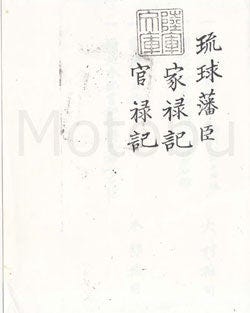 琉球藩臣
家禄記
官禄記
陸軍
文庫
Motobu